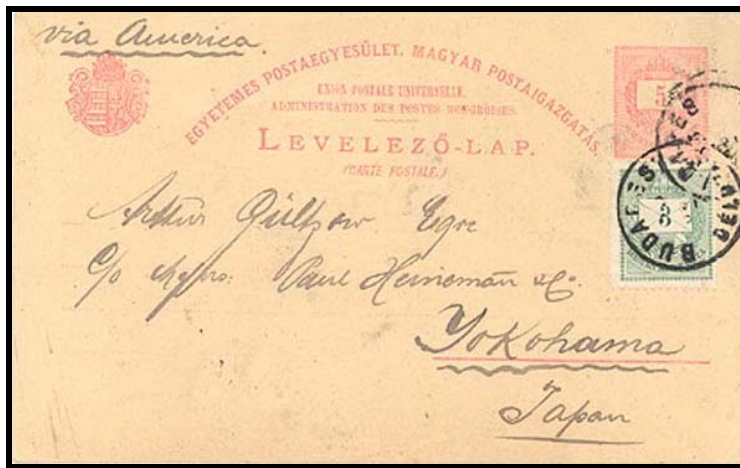 via America.
EGYETEMES POSTAEGYESÜLET. MAGYAR POSTAIGAZGATÁS.
UNION POSTALE UNIVERSELLE.
ADMINISTRATION DES POSTES HONGROISES.
LEVELEZŐ-LAP.
(CARTE POSTALE.)
5
3
BUDAPEST
Arthur Gültzow Esqre
c/o Messrs. Paul Heineman & Co.
Yokohama
Japan